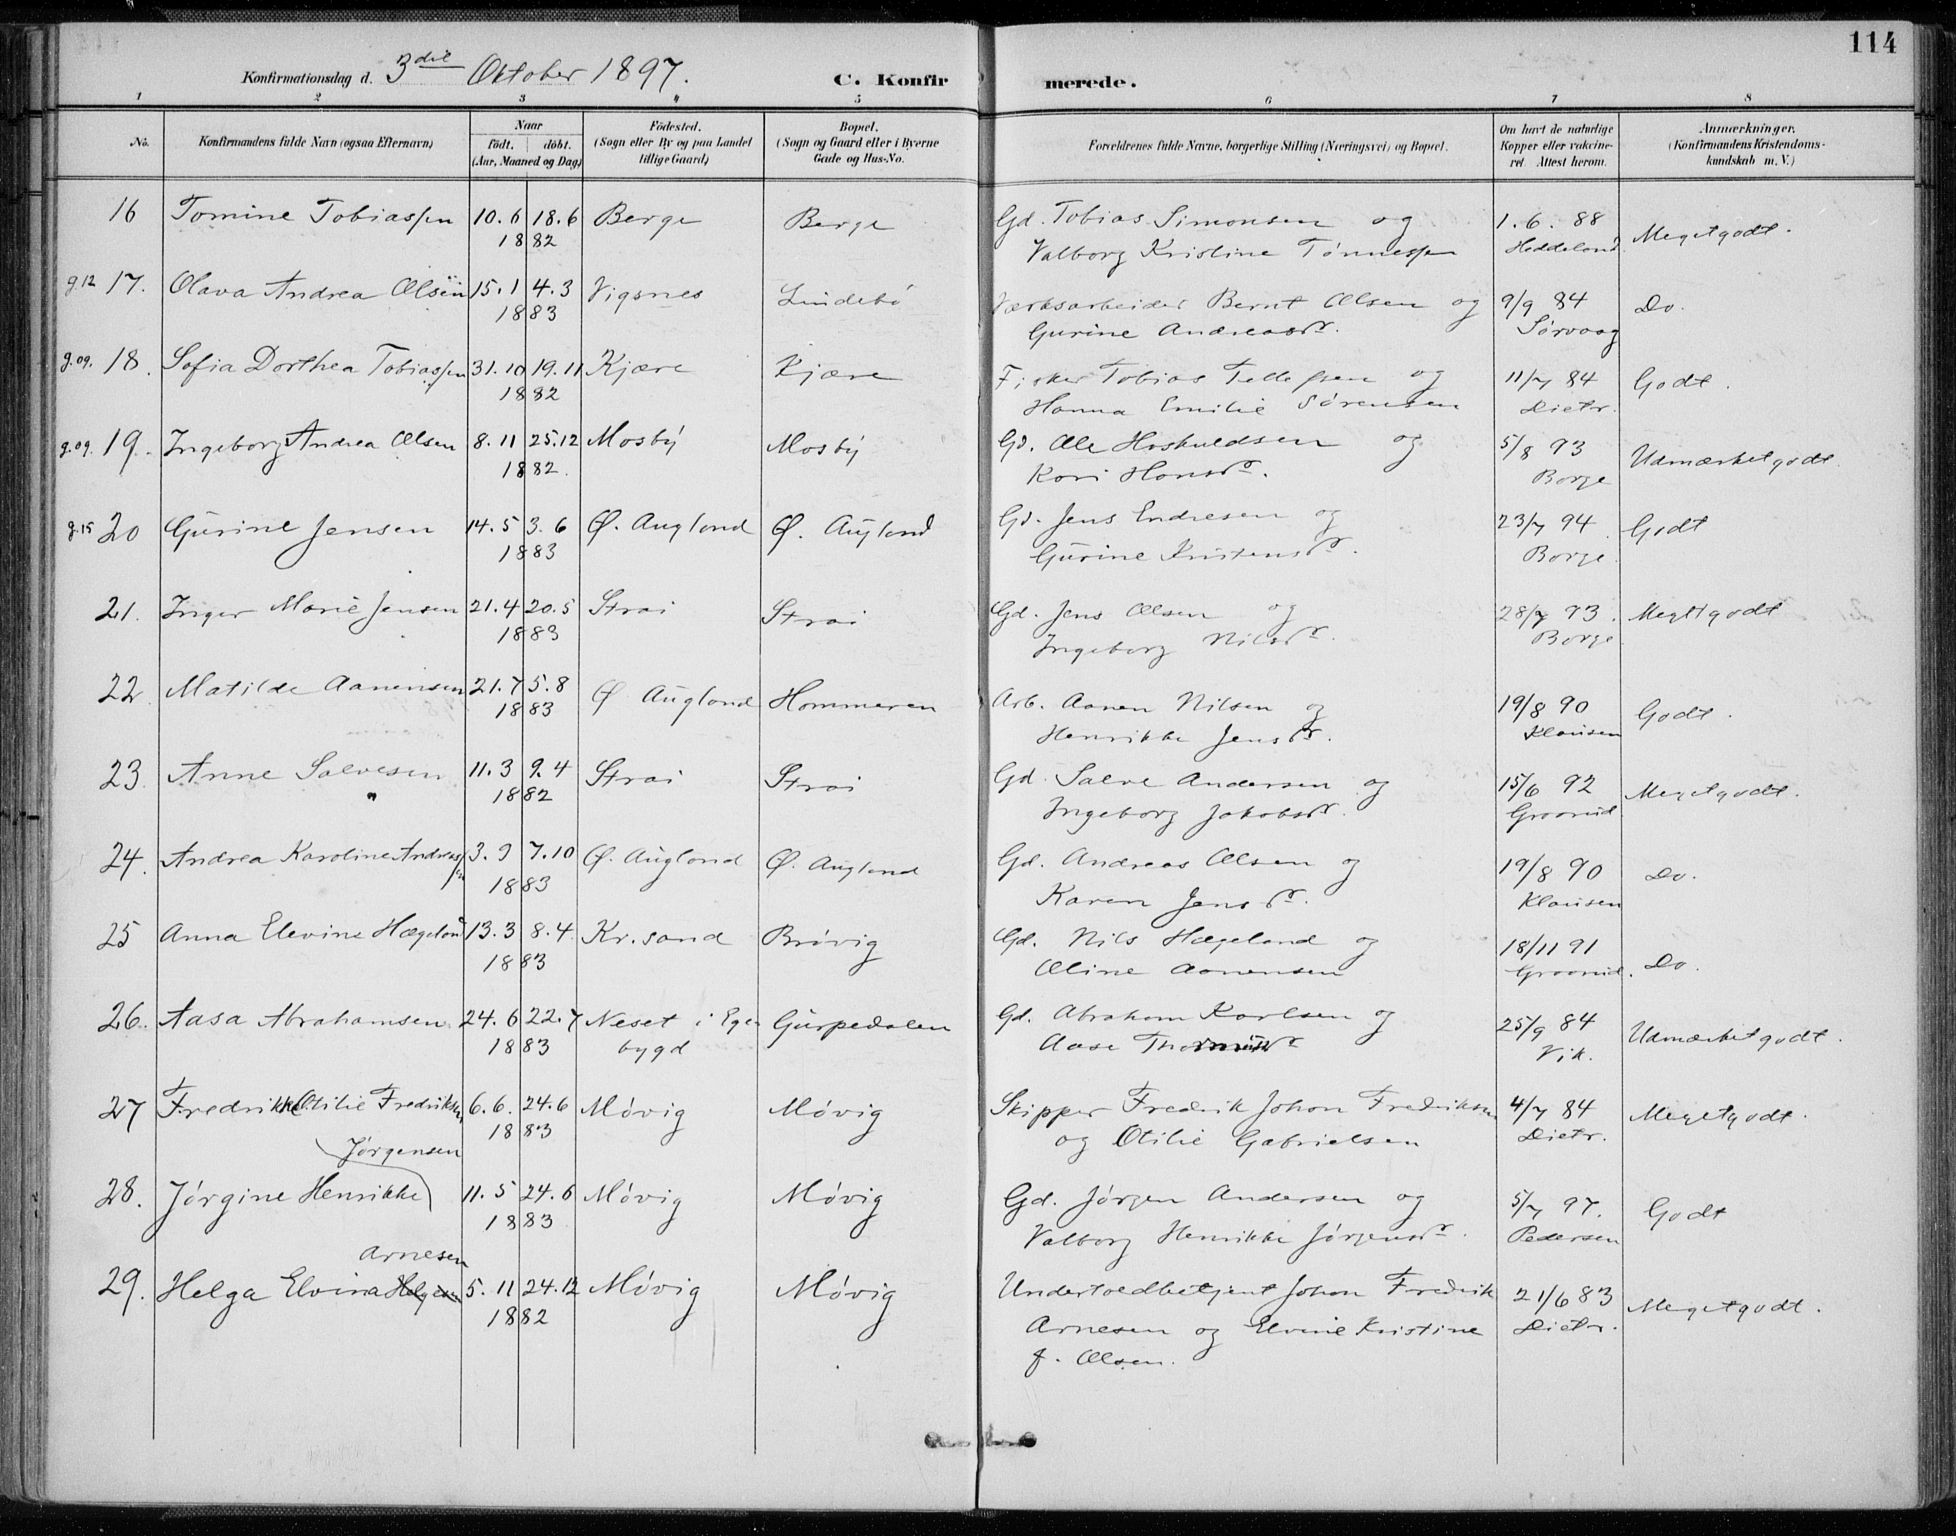 114
Konfirmationsdag d. 3die Oktober 1897.
C. Konfirmerede.
1 2 3 4 5 6 7 8
No. Konfirmandens fulde Navn (ogsaa Efternavn) Naar født. døbt. (Aar, Maaned og Dag) Fødested. (Sogn eller By og paa Landet tillige Gaard) Bopæl. (Sogn og Gaard eller i Byerne Gade og Hus-No. Forældrenes fulde Navne, borgerlige Stilling (Næringsvei) og Bopæl. Om havt de naturlige Kopper eller vakcineret Attest herom. Anmærkninger. (Konfirmandens Kristendomskundskab m. V.)
16 Tomine Tobiassen 10.6 18.6 Berge Berge Gd. Tobias Simonsen og 1.6. 88 Megetgodt.
1882 Valborg Kristine Tønnessen Heddeland
g.12 17. Olava Andrea Olsen 15.1 4.3 Vigsnes Lindebø Værksarbeider Bernt Olsen og 9/9 84 Do.
1883 Gurine Andreasdr. Sørvaag
g.09. 18. Sofia Dorthea Tobiassen 31.10 19.11 Kjære Kjære Fisker Tobias Tellefsen og 11/7 84 Godt.
1882 Hanna Emilie Sørensen Dietr.
g.09. 19. Ingeborg Andrea Olsen 8.11 25.12 Mosby Mosby Gd. Ole Hoskuldsen og 5/8 93 Udmærketgodt
1882. Kari Hansdr. Borge
g.15 20 Gurine Jensen 14.5 3.6 Ø. Augland Ø. Augland Gd. Jens Endresen og 23/7 94 Godt
1883 Gurine Kristensdr. Borge
21. Inger Marie Jensen 21.4 20.5 Strai Strai Gd. Jens Olsen og 28/7 93. Megetgodt
1883 Ingeborg Nilsdr. Borge
22 Matilde Aanensen 21.7 5.8 Ø Augland Hommeren Arb. Aanen Nilsen og 19/8 90 Godt.
1883 Henrikke Jensdr. Klausen
23. Anne Salvesen 11.3 9.4 Strai Strai Gd. Salve Andersen og 15/6 92 Megetgodt.
1882 Ingeborg Jakobsdr. Groonid
24. Andrea Karoline Andreassen 3.9 7.10 Ø. Augland Ø. Augland Gd. Andreas Olsen og 19/8 90 Do.
1883 Karen Jensdr. Klausen
25 Anna Elevine Hægeland 13.3 8.4 Kr.sand Brøvig Gd. Nils Hægeland og 18/11 91 Do.
1883 Oline Aanensen Groonid.
26. Aasa Abrahamsen 24.6 22.7 Neset i Ege- Gurpedalen Gd. Abraham Karlsen og 25/9 84 Udmærketgodt.
1883 bygd Aase Vik.
27 Fredrikke Otilie Fredriksen 6.6. 24.6 Møvig Møvig Skipper Fredrik Johan Fredriksen 4/7 84 Megetgodt.
1883 og Otilie Gabrielsen Dietr.
Jørgensen
28. Jørgine Henrikke 11.5 24.6 Møvig Møvig Gd. Jørgen Andersen og 5/7 97. Godt
1883 Valborg Henrikke Jørgensdr. Pedersen
Arnesen
29. Helga Elvina Helgesen 5.11 24.12 Møvig Møvig Undertoldbetjent Johan Fredrik 21/6 83 Megetgodt.
1882 Arnesen og Elvine Kristine Dietr.
f. Olsen.